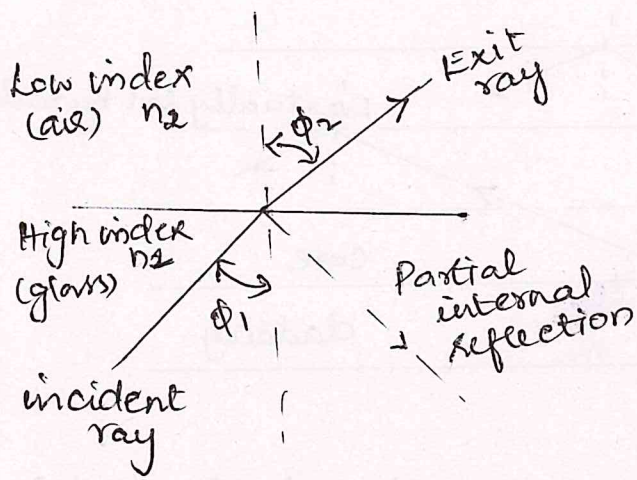 Low index
(air) n2
Exit
ray
ϕ2
High index
n1
(glass)
ϕ1
Partial
internal
reflection
incident
ray